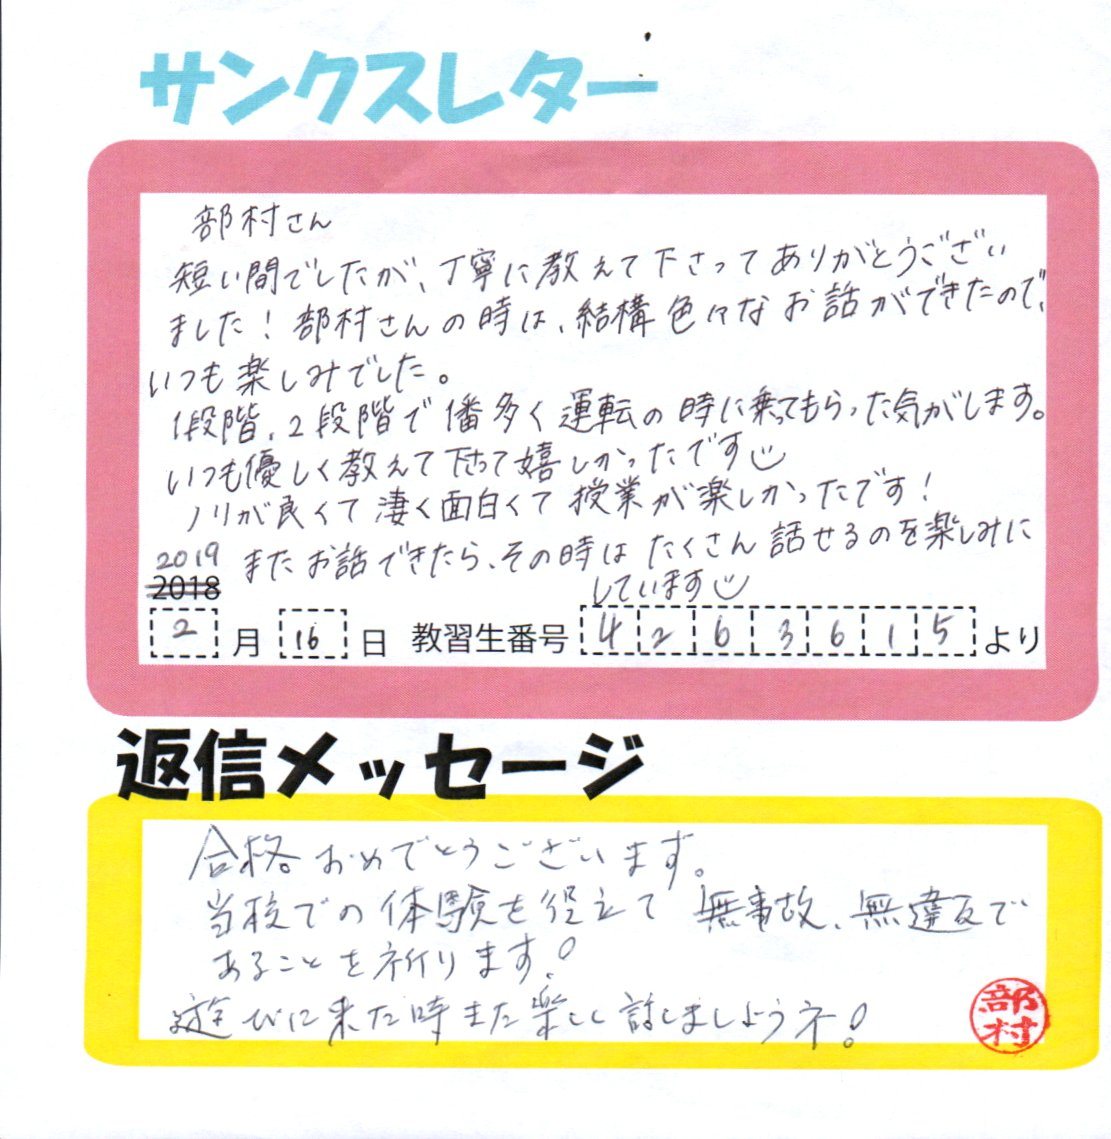 サンクスレター
部村さん
短い間でしたが、丁寧に教えて下さってありがとうござい
ました！部村さんの時は、結構色々なお話ができたので、
いつも楽しみでした。
1段階、2段階で1番多く運転の時に乗ってもらった気がします。
いつも優しく教えて下さって嬉しかったです
ノリが良くて凄く面白くて授業が楽しかったです！
2019 またお話できたら、その時はたくさん話せるのを楽しみに
しています
2018
2月16日 教習生番号 4263615より
返信メッセージ
合格おめでとうございます。
当校での体験を 無事故、無違反で
あることを祈ります！
遊びに来た時また楽しく話しましょうネ！
部村